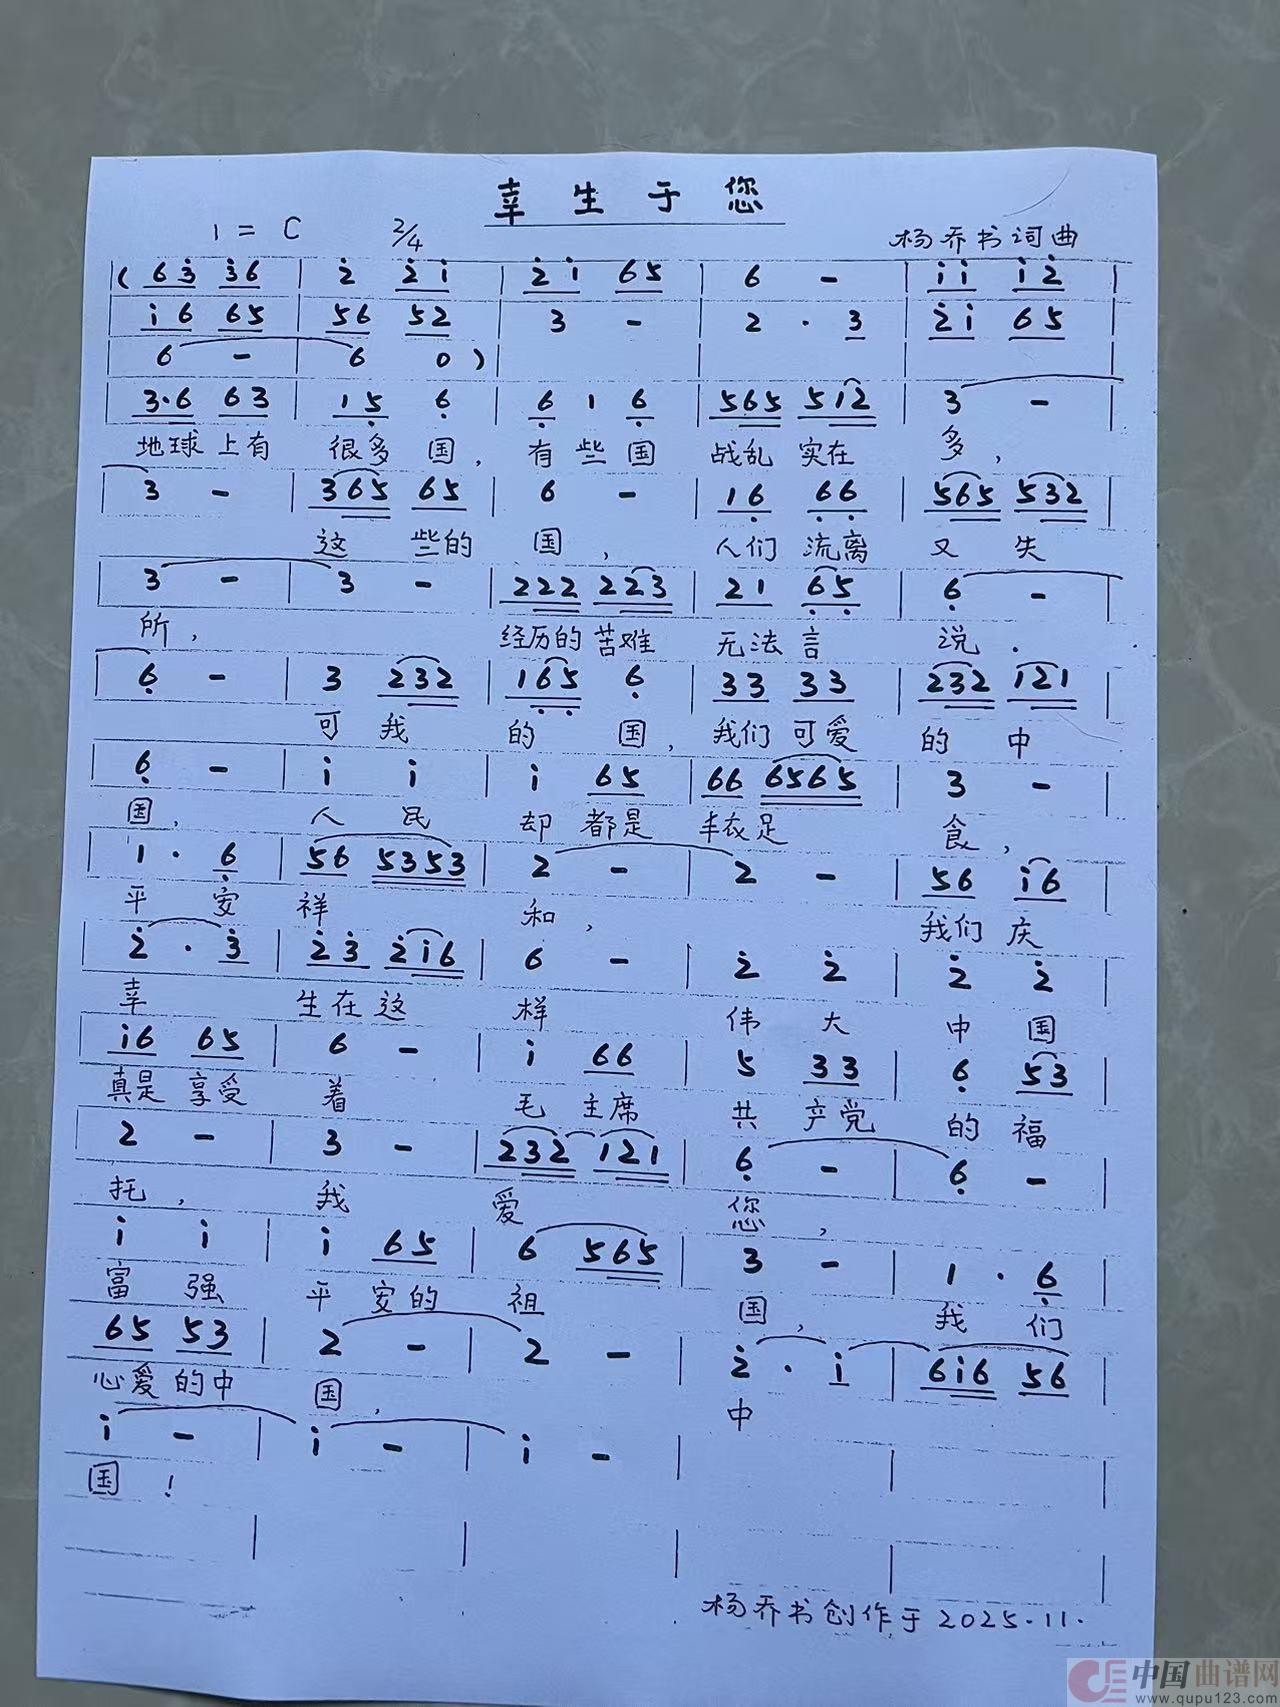 幸生于您
1 = C 2/4 杨乔书词曲
( 6 3̇ 3̇ 6 | 2̇ 2̇ i | 2̇ i 6 5 | 6 - | i i i 2̇ |
i 6 6 5 | 5 6 5 2 | 3 - | 2 · 3 | 2̇ i 6 5 |
6 - | 6 0 )
3·6 6 3 | 1 5̣ 6̣ | 6̣ 1 6̣ | 5 6 5 5 1 2 | 3 - |
地球上有 很多国, 有些国 战乱实在 多,
3 - | 3 6 5 6 5 | 6 - | 1 6̣ 6̣ 6̣ | 5 6 5 5 3 2 |
这些的 国, 人们流离 又失
3 - | 3 - | 2 2 2 2 2 3 | 2 1 6̣ 5̣ | 6̣ - |
所, 经历的苦难 无法言 说.
6̣ - | 3 2 3 2 | 1 6̣ 5̣ 6̣ | 3 3 3 3 | 2 3 2 1 2 1 |
可我 的国, 我们可爱 的中
6̣ - | i i | i 6 5 | 6 6 6 5 6 5 | 3 - |
国, 人民 却都是 丰衣足 食,
1 · 6̣ | 5 6 5 3 5 3 | 2 - | 2 - | 5 6 i 6 |
平安 祥 和, 我们庆
2̇ · 3̇ | 2̇ 3̇ 2̇ i 6 | 6 - | 2̇ 2̇ | 2̇ 2̇
幸 生在这 样 伟大 中国
i 6 6 5 | 6 - | i 6 6 | 5 3 3 | 6̣ 5 3 |
真是享受 着 毛主席 共产党 的福
2 - | 3 - | 2 3 2 1 2 1 | 6̣ - | 6̣ - |
托, 我 爱 您,
i i | i 6 5 | 6 5 6 5 | 3 - | 1 · 6̣ |
富强 平安的 祖 国, 我们
6 5 5 3 | 2 - | 2 - | 2̇ · i | 6 i 6 5 6 |
心爱的中 国, 中
i - | i - | i - |
国!
杨乔书创作于2025.11.
中国曲谱网
www.qupu123.com